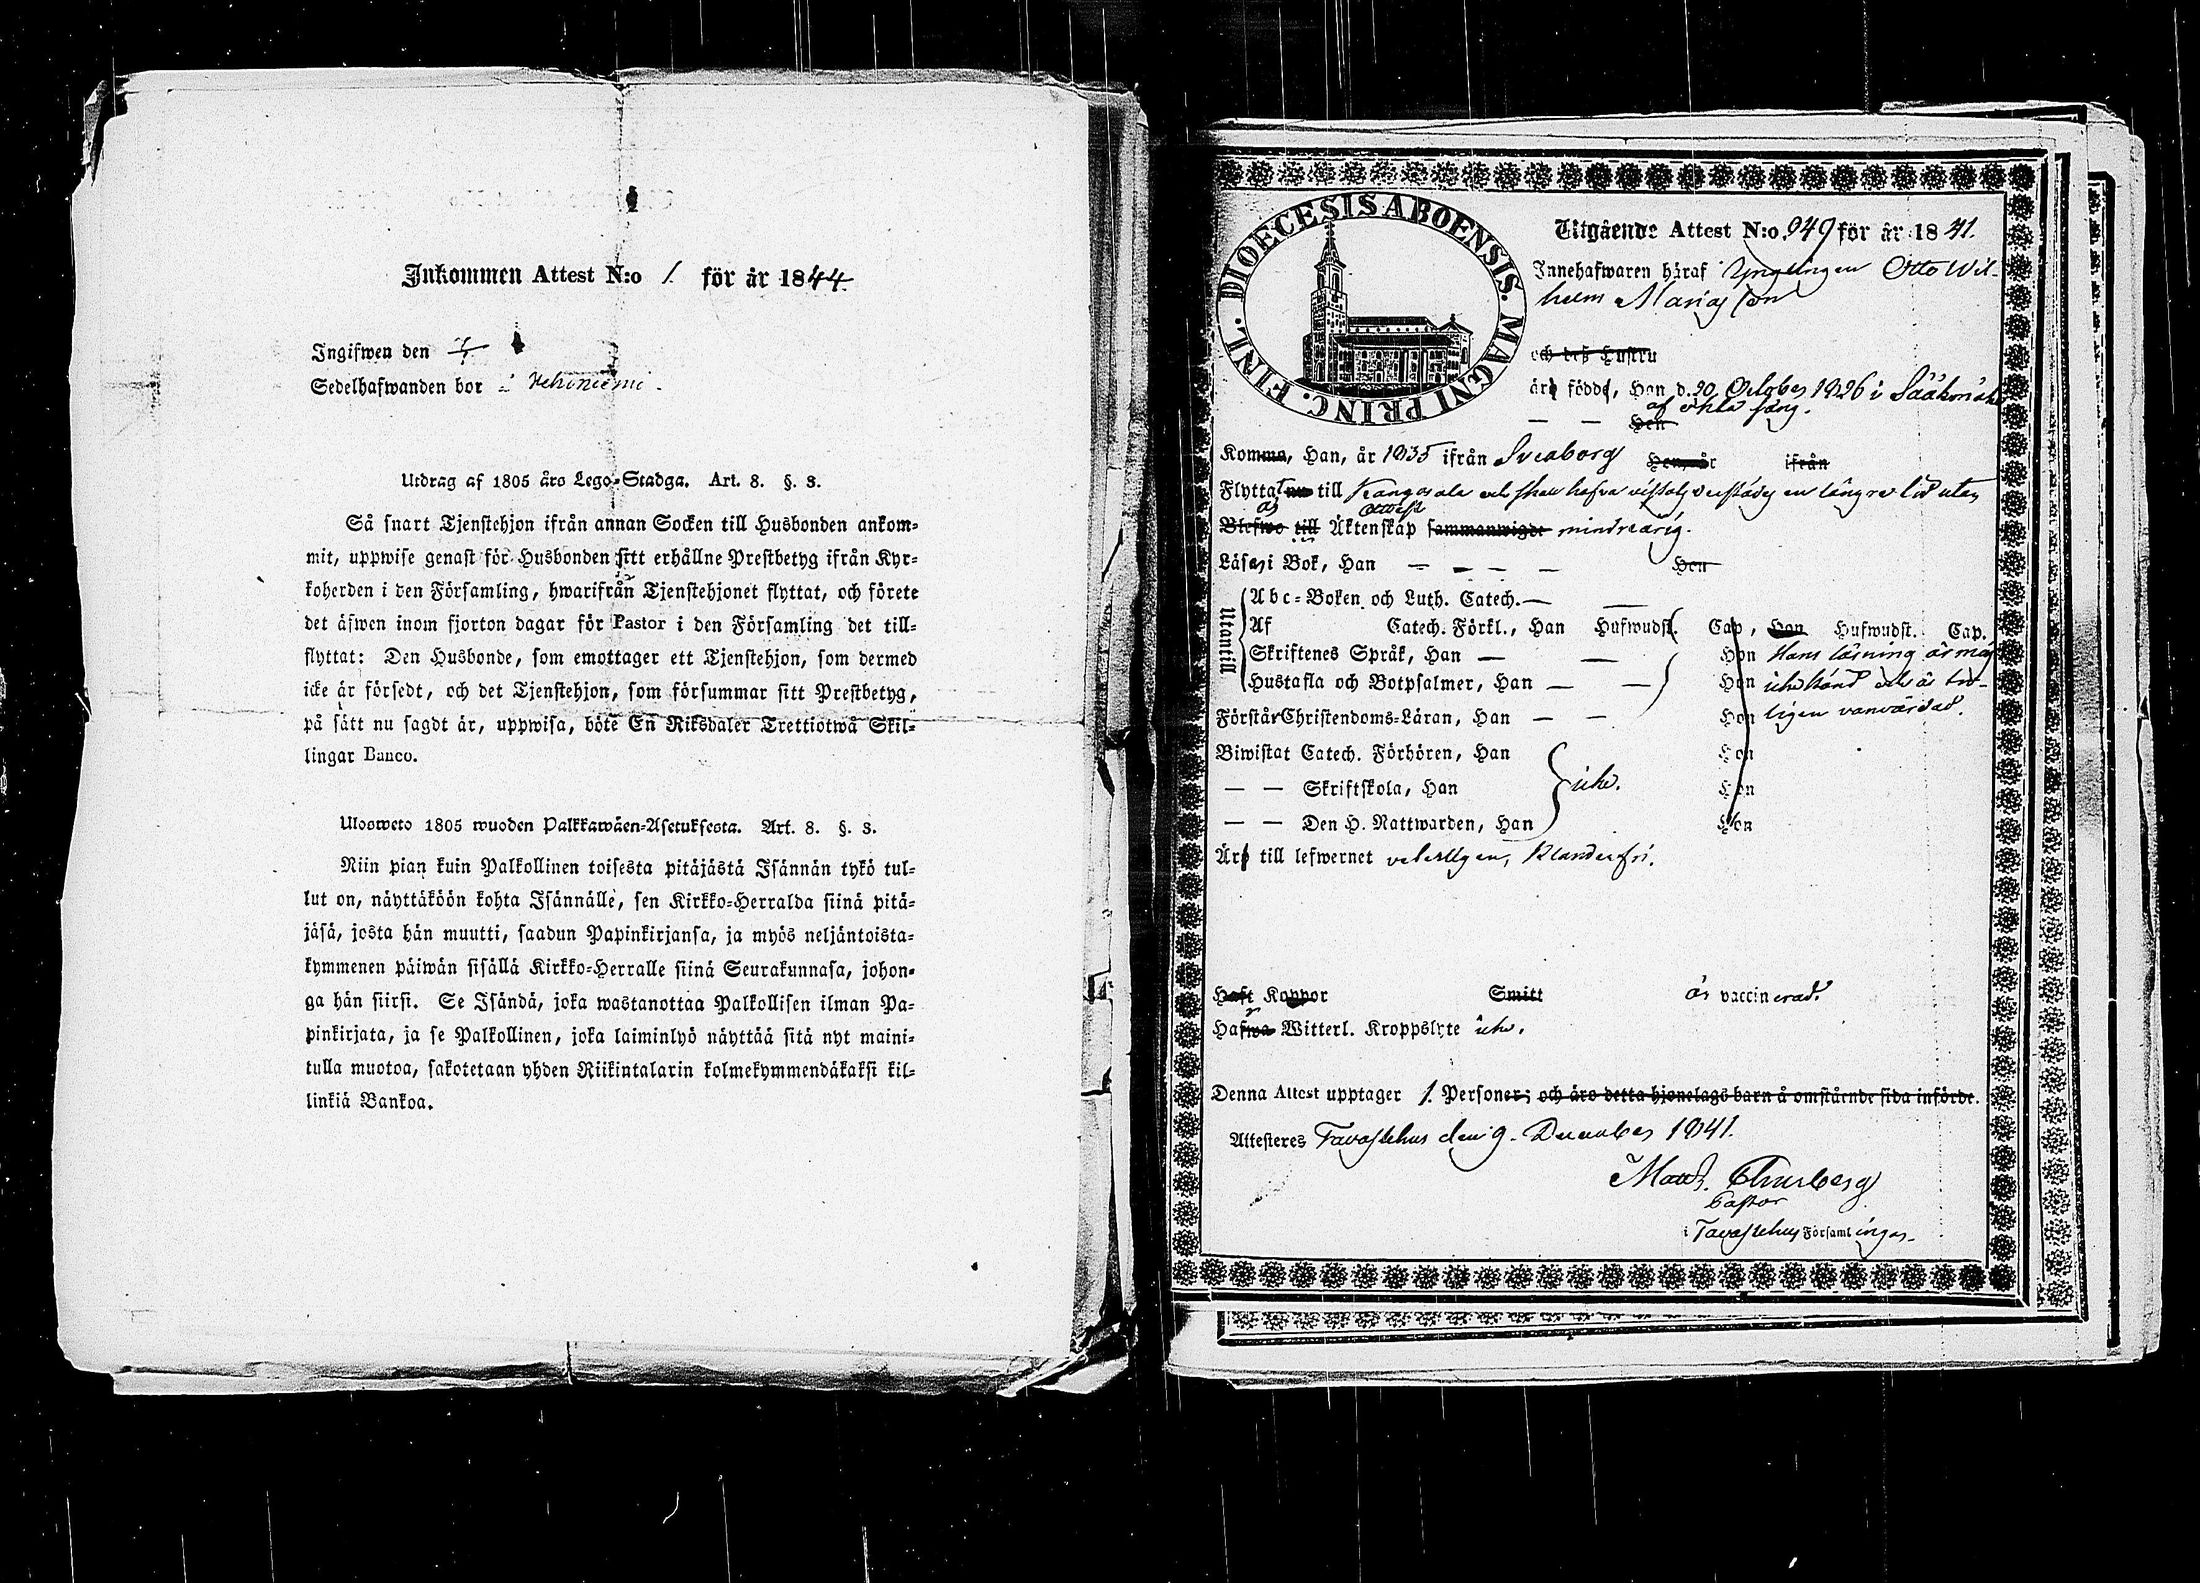 Inkommen Attest N:o 1. för år 1844.
Ingifwen den
Sedelhafwanden bor i Vehoniemi.
Utdrag af 1805 års Lego-Stadga. Art. 8. §. 3.
Så snart Tjenstehjon ifrån annan Socken till Husbonden ankom-
mit, uppwise genast för Husbonden sitt erhållne Prestbetyg ifrån Kyr-
koherden i den Församling, hwarifrån Tjenstehjonet flyttat, och förete
det äfwen inom fjorton dagar för Pastor i den Församling det till-
flyttat: Den Husbonde, som emottager ett Tjenstehjon, som dermed
icke är försedt, och det Tjenstehjon, som försummar sitt Prestbetyg,
på sätt nu sagdt är, uppwisa, böte En Riksdaler Trettiotwå Skil-
lingar Banco.
Ulosweto 1805 wuoden Palkkawäen-Asetuksesta. Art. 8. §. 3.
Niin pian kuin Palkollinen toisesta pitäjästä Isännän tykö tul-
lut on, näyttäköön kohta Isännälle, sen Kirkko-Herralda siinä pitä-
jäsä, josta hän muutti, saadun Papinkirjansa, ja myös neljäntoista-
kymmenen päiwän sisällä Kirkko-Herralle siinä Seurakunnasa, johon-
ga hän siirsi. Se Isändä, joka wastanottaa Palkollisen ilman Pa-
pinkirjata, ja se Palkollinen, joka laiminlyö näyttää sitä nyt maini-
tulla muotoa, sakotetaan yhden Riikintalarin kolmekymmendäkaksi kil-
linkiä Bankoa.
DIOECESIS ABOENSIS. MAGNI PRINC. FINL.
Utgående Attest N:o 949 för år 1841.
Innehafwaren häraf Ynglingen Otto Wil-
helm Mariasson
och deß Hustru
äro födde, Han d. 20 October 1826 i Sääksmäki
af äkta säng.
— — Hon
Komma, Han, år 1835 ifrån Sveaborg Hon, år ifrån
Flyttat nu till Kangasala och skall hafva vistats derstädes en längre tid utan
är attest
Blefwo till Äktenskap sammanwigde minderårig.
Läsa, i Bok, Han — — — — Hon
Utantill
Abc-Boken och Luth. Catech. — —
Af Catech. Förkl., Han Hufwudst. Cap, Hon Hufwudst. Cap.
Skriftenes Språk, Han — — Hon Hans läsning är
Hustafla och Botpsalmer, Han — — Hon och är tro-
Förstår Christendoms-Läran, Han — — Hon ligen vanvårdad.
Biwistat Catech. Förhören, Han Hon
— — Skriftskola, Han icke. Hon
— — Den H. Nattwarden, Han Hon
Äro till lefwernet veterligen, klanderfri.
Haft Koppor Smitt är vaccinerad.
Hafwa Witterl. Kroppslyte icke.
Denna Attest upptager 1. Personer; och äro detta hjonelags barn å omstående sida införde.
Attesteres Tavastehus den 9. December 1841.
Matth. Thurberg
Pastor
i Tavastehus Församlingar.